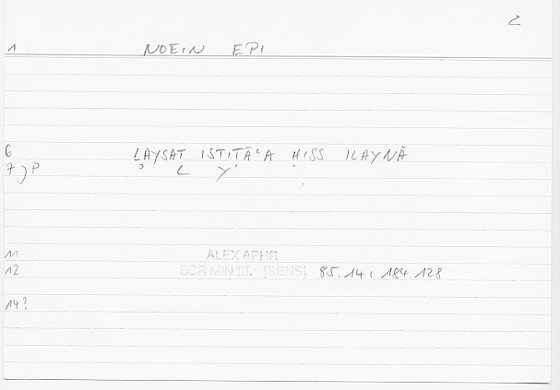 2
1 NOEIN EPI
6 LAYSAT ISTIṬĀʿA ḤISS ILAYNĀ
7 P
11 ALEX APHR
12 SCR MIN III. [SENS] 85,14; 184.128
14?